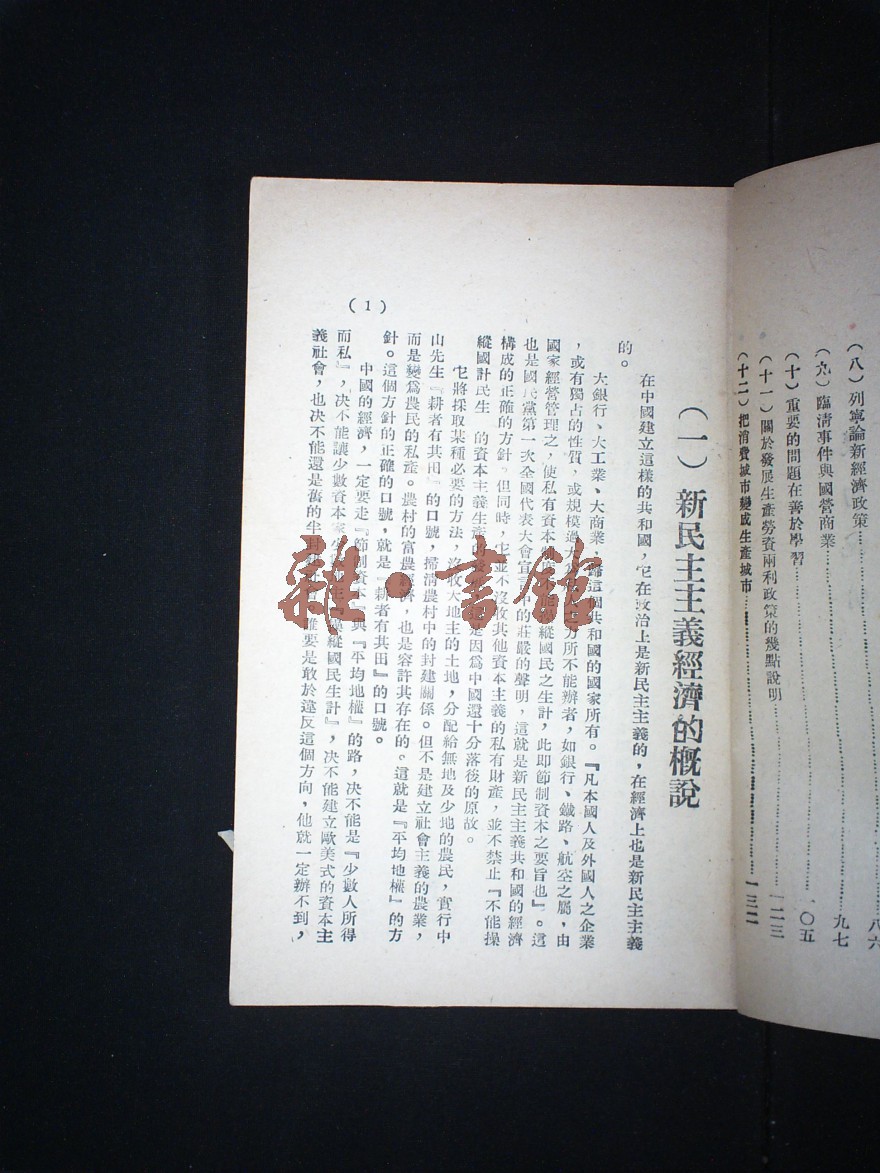 (八)列寧論新經濟政策……八六
(九)臨清事件與國營商業……九七
(十)重要的問題在善於學習……一〇五
(十一)關於發展生產勞資兩利政策的幾點說明……一二三
(十二)把消費城市變成生產城市……一三二
(一)新民主主義經濟的概說
在中國建立這樣的共和國,它在政治上是新民主主義的,在經濟上也是新民主主義
的。
大銀行、大工業、大商業,歸這個共和國的國家所有。『凡本國人及外國人之企業
,或有獨占的性質,或規模過大 力所不能辦者,如銀行、鐵路、航空之屬,由
國家經營管理之,使私有資本 縱國民之生計,此即節制資本之要旨也』。這
也是國民黨第一次全國代表大會宣 中的莊嚴的聲明,這就是新民主主義共和國的經濟
構成的正確的方針。但同時,它並不沒收其他資本主義的私有財產,並不禁止『不能操
縱國計民生』的資本主義生產的發 是因爲中國還十分落後的原故。
它將採取某種必要的方法,沒收大地主的土地,分配給無地及少地的農民,實行中
山先生『耕者有其田』的口號,掃清農村中的封建關係。但不是建立社會主義的農業,
而是變爲農民的私產。農村的富農經濟,也是容許其存在的。這就是『平均地權』的方
針。這個方針的正確的口號,就是『耕者有其田』的口號。
中國的經濟,一定要走『節制資本』與『平均地權』的路,决不能是『少數人所得
而私』,决不能讓少數資本家 操縱國民生計』,决不能建立歐美式的資本主
義社會,也决不能還是舊的半封 誰要是敢於違反這個方向,他就一定辦不到,
(1)
雜·書館